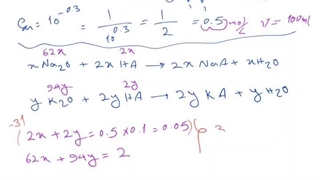 C_HA = 10^-0.3 = 1/10^0.3 = 1/2 = 0.5 mol/L V = 100 ml
62x 2x
x Na2O + 2x HA → 2x NaA + x H2O
94y 2y
y K2O + 2y HA → 2y KA + y H2O
-31 ( 2x + 2y = 0.5 × 0.1 = 0.05 )
62x + 94y = 2